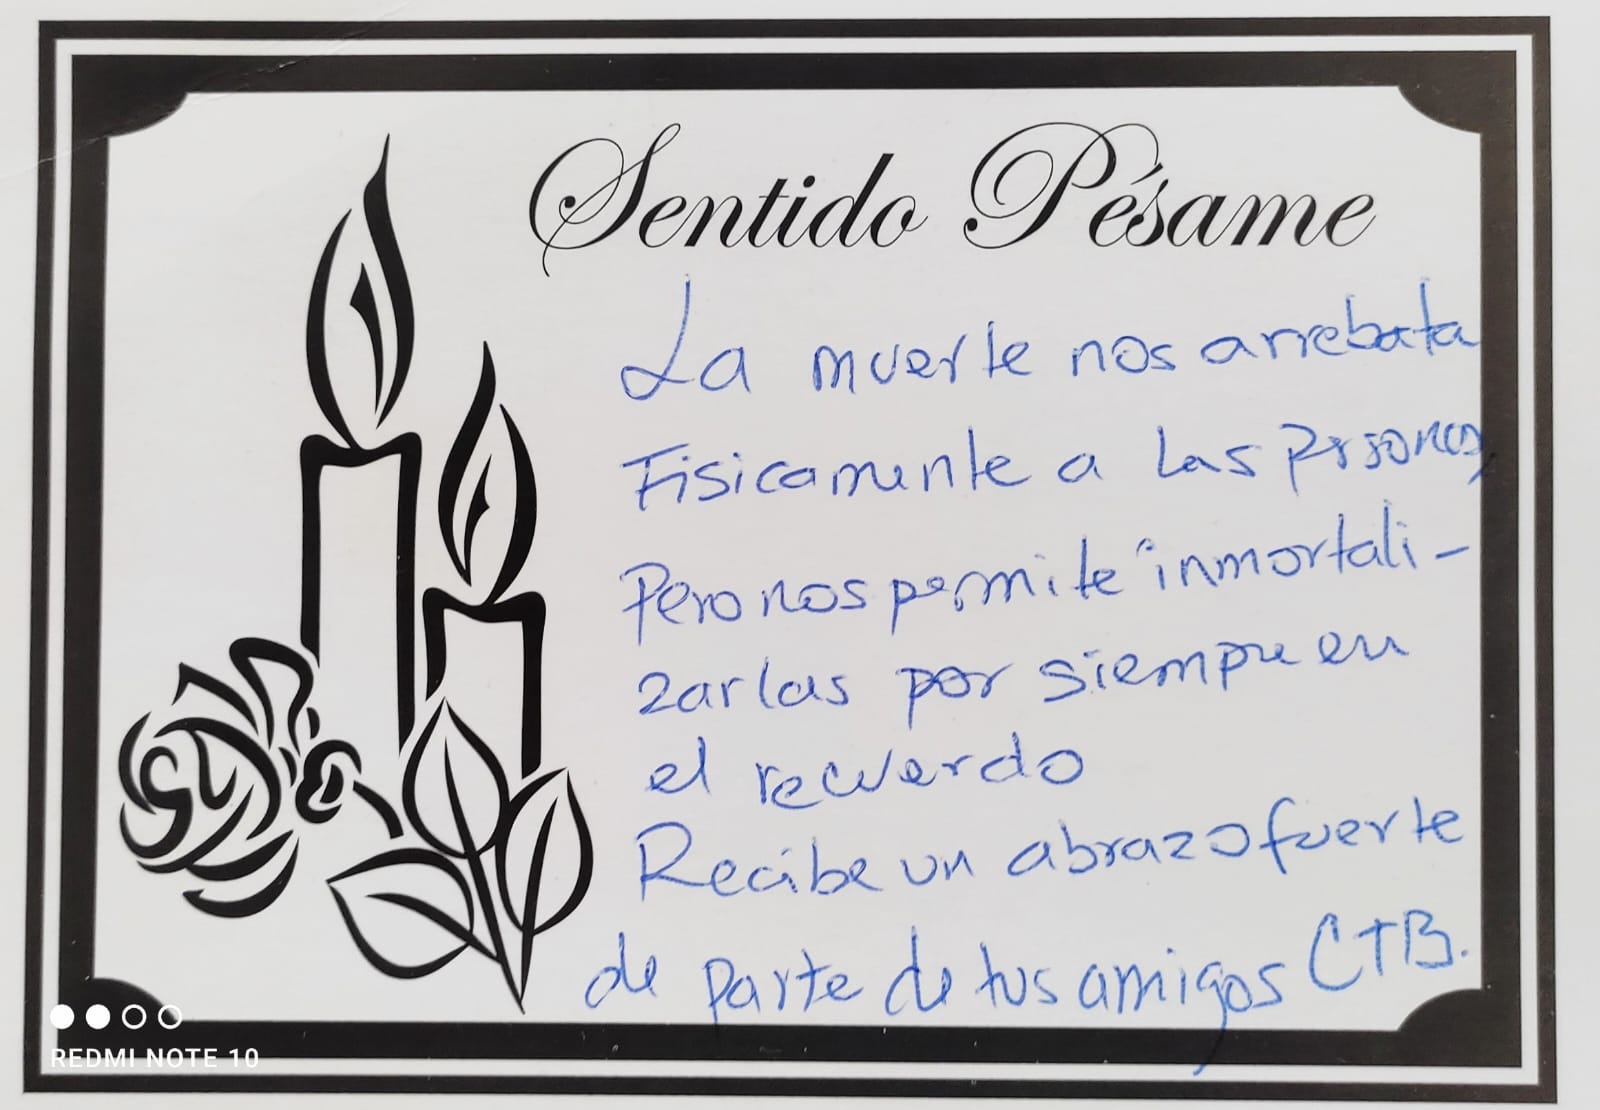 Sentido Pésame
La muerte nos arrebata
Fisicamente a las personas,
Pero nos permite inmortali-
zarlas por siempre en
el recuerdo
Recibe un abrazo fuerte
de parte de tus amigos CTB.
REDMI NOTE 10